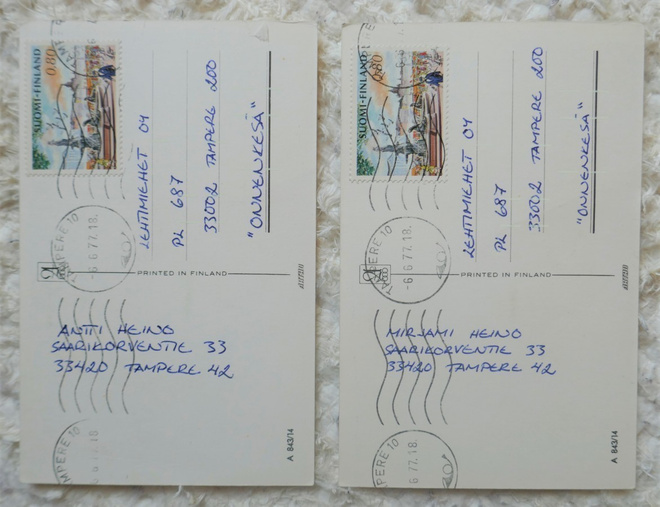 SUOMI-FINLAND 0,80
LEHTIMIEHET 04
PL 687
33002 TAMPERE 200
"ONNENKESÄ"
TAMPERE 10
-6.6.77.18.
PRINTED IN FINLAND
ANTTI HEINO
SAARIKORVENTIE 33
33420 TAMPERE 42
MPERE 10
6.77.18
A 843/14
SUOMI-FINLAND 0,80
LEHTIMIEHET 04
PL 687
33002 TAMPERE 200
"ONNENKESÄ"
TAMPERE 10
-6.6.77.18.
PRINTED IN FINLAND
MIRJAMI HEINO
SAARIKORVENTIE 33
33420 TAMPERE 42
MPERE 10
6.77.18
A 843/14